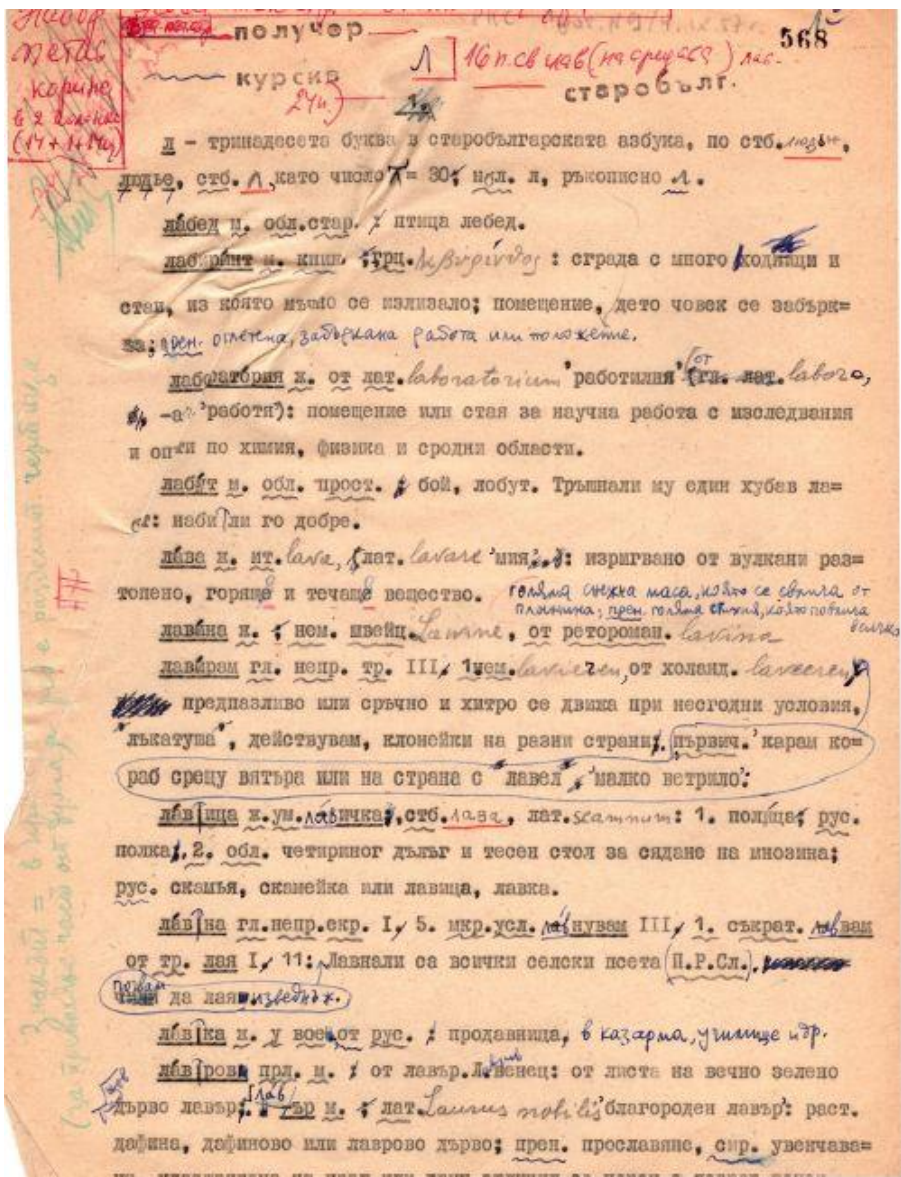 Набор
петит
корпус
в 2 колони
(14+1+14ц)
получер 568
Л 16 п. св чав (на средата) лас.
курсив старобълг.
24ц.
л – тринадесета буква в старобългарската азбука, по стб. людьѥ,
людье, стб. Л, като число Л = 30; нбл. л, ръкописно л.
ла́бед м. обл. стар. : птица лебед.
лабири́нт м. книж. грц. λαβύρινθος : сграда с много ходници и
стаи, из която мъчно се излизало; помещение, дето човек се забърк=
ва; прен. оплетена, забъркана работа или положение.
лаборато́рия ж. от лат. laboratorium 'работилня' (от лат. laboro,
-a 'работя'): помещение или стая за научна работа с изследвания
и опити по химия, физика и сродни области.
лабу́т м. обл. прост. бой, лобут. Тръшнали му един хубав ла=
бут: набили го добре.
ла́ва ж. ит. lava, (лат. lavare 'мия'): изригвано от вулкани раз=
топено, горящо и течащо вещество.
голяма снежна маса, която се свлича от
планина; прен. голяма стихия, която повлича
всичко
лави́на ж. нем. швейц. Lawine, от ретороман. lavina
лави́рам гл. непр. тр. III, 1 нем. lavieren, от холанд. laveeren
предпазливо или сръчно и хитро се движа при несгодни условия,
"лъкатуша", действувам, клонейки на разни страни. първич. 'карам ко=
раб срещу вятъра или на страна с "лавел", малко ветрило':
ла́вица ж. ум. лавичка, стб. лава, лат. scamnum: 1. полица; рус.
полка, 2. обл. четириног дълъг и тесен стол за сядане на мнозина;
рус. скамья, скамейка или лавица, лавка.
ла́вна гл. непр. екр. I, 5. мкр. усл. лавнувам III, 1. съкрат. лаввам
от тр. лая I, 11: Лавнали са всички селски псета (П.Р.Сл.).
почвам да лая изведнъж.
ла́вка ж. у воен. от рус. : продавница, в казарма, училище и др.
ла́вров прл. м. от лавър. Л. венец: от листа на вечно зелено
дърво лавър; лавър м. лат. Laurus nobilis 'благороден лавър': раст.
дафина, дафиново или лаврово дърво; прен. прославяне, сир. увенчава=